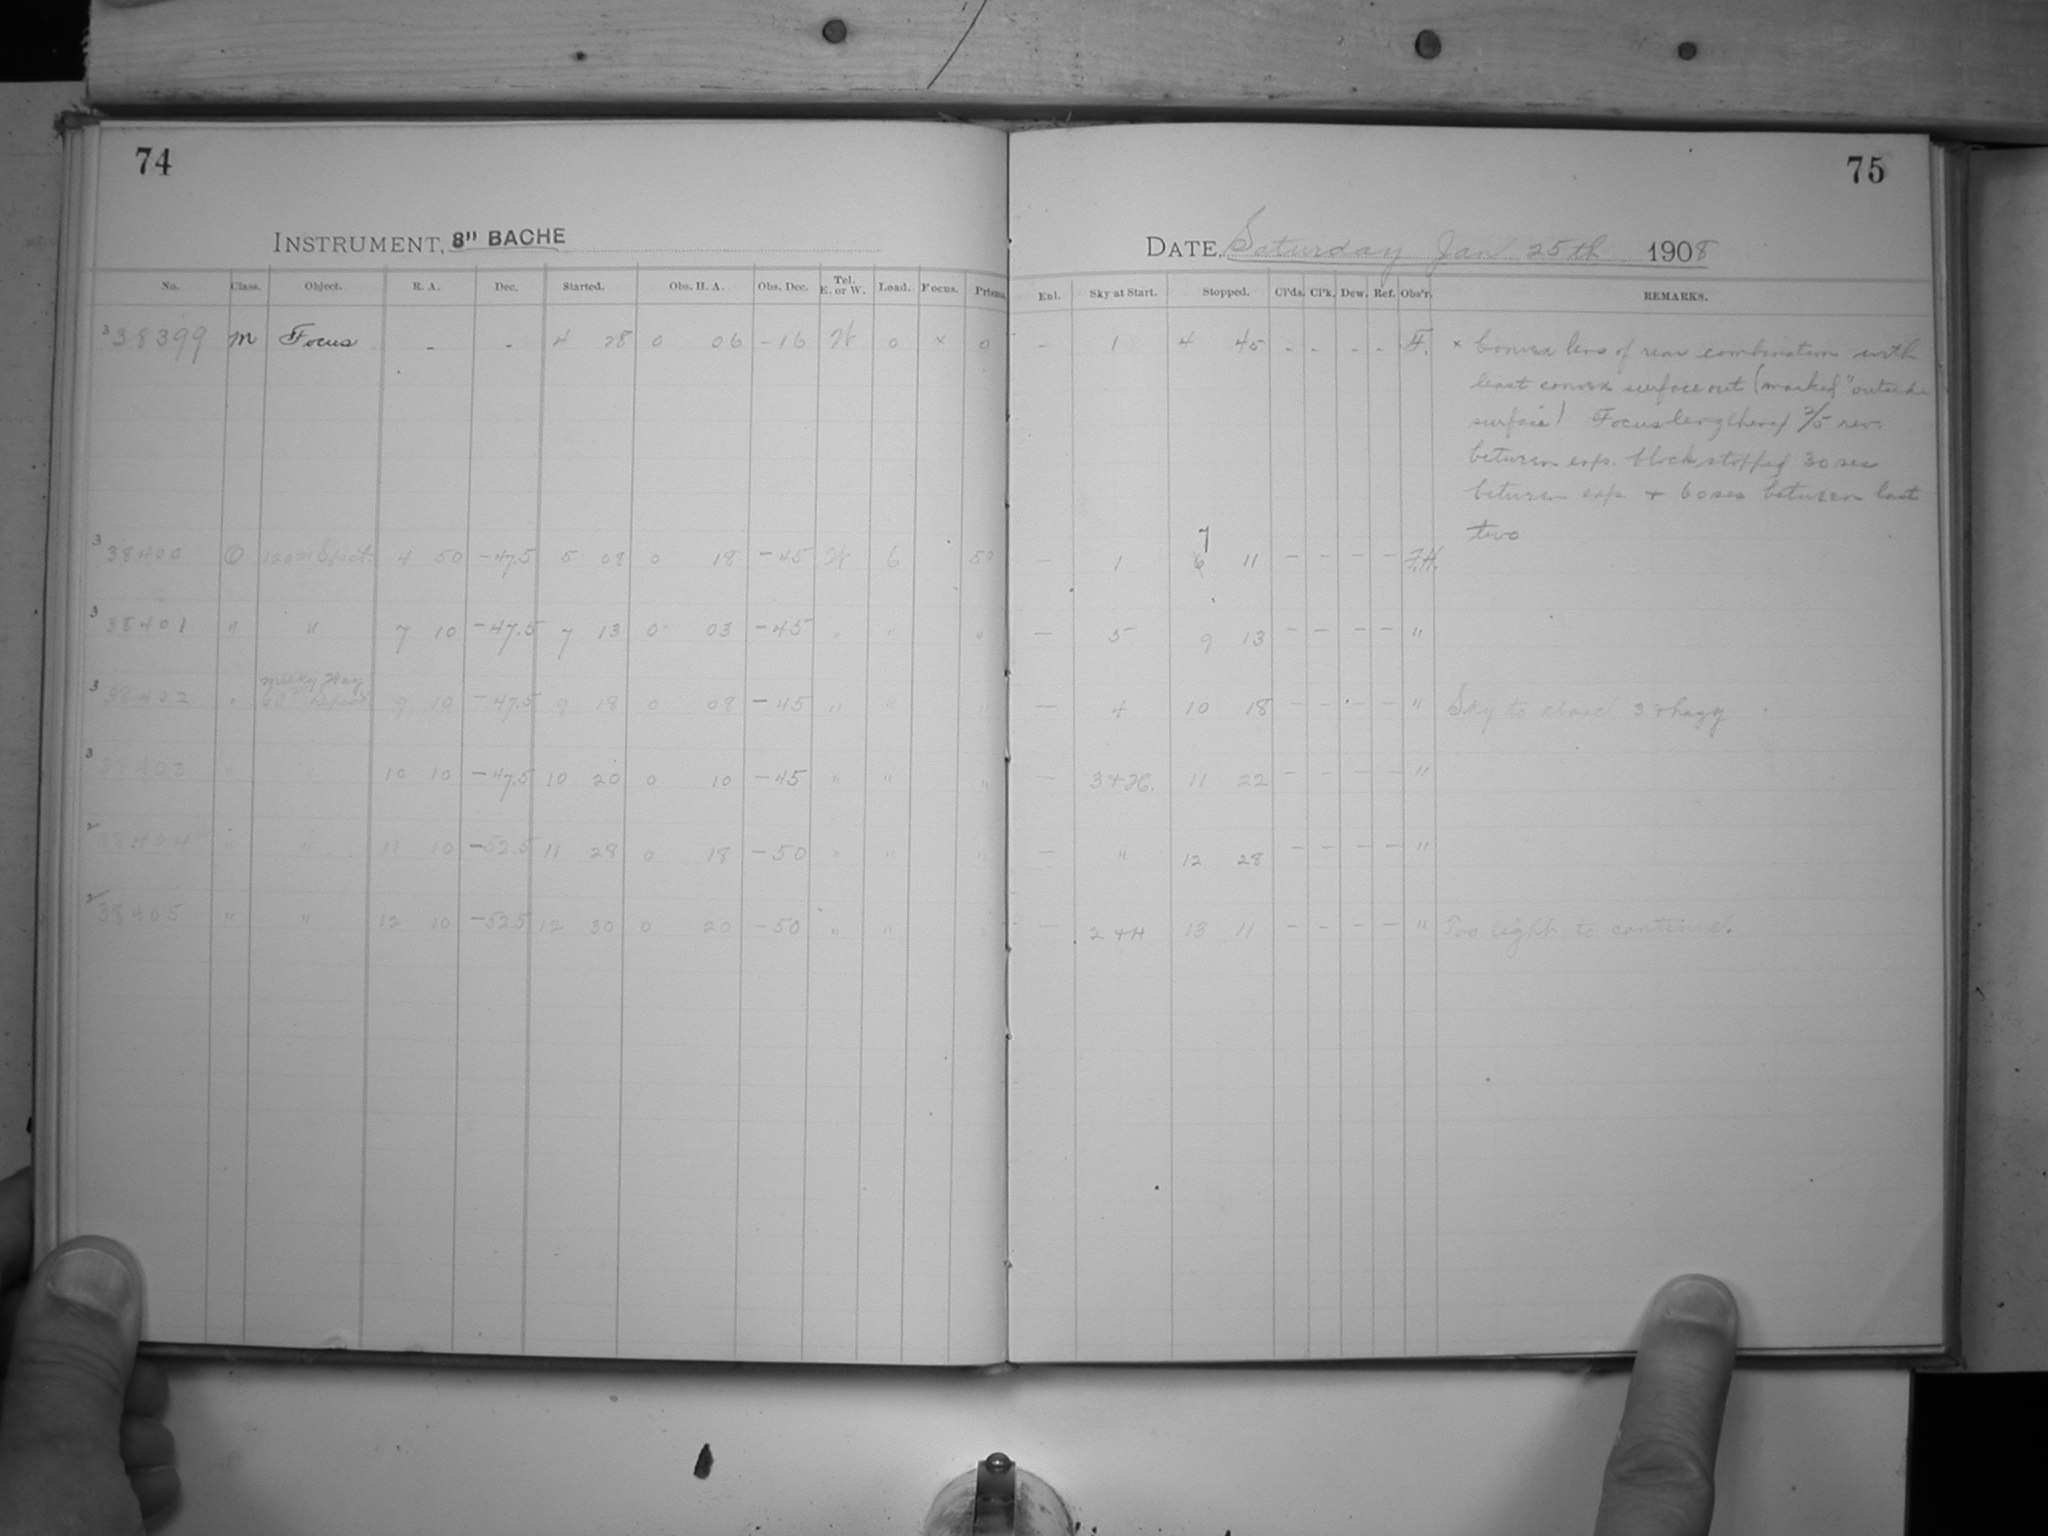 74
75
INSTRUMENT, 8" BACHE
DATE, Saturday Jan 25th 1908
No. Class. Object. R. A. Dec. Started. Obs. H. A. Obs. Dec. Tel. E. or W. Load. Focus. Prisms.
Enl. Sky at Start. Stopped. Cl'ds. Cl'k. Dew. Ref. Obs'r. REMARKS.
3 38399 M Focus - - 4 28 0 06 -16 W 0 × 0 — 1 4 45 - - - - F. × Convex lens of rear combination with
least convex surface out (marked "outside
surface) Focus lengthened 2/5 rev.
between exps. clock stopped 30 sec
between exps + 60 sec between last
two
3 38400 O 120m Spect. 4 50 -47.5 5 08 0 18 -45 W 6 50 — 1 7 11 — — — — F.H.
3 38401 " " 7 10 -47.5 7 13 0 03 -45 " " " — 5 9 13 — — — — "
3 38402 " Milky Way 60m Spect. 9 10 -47.5 9 18 0 08 -45 " " " — 4 10 18 — — — — " Sky to close 3 + hazy
3 38403 " 10 10 -47.5 10 20 0 10 -45 " " " — 3 + H. 11 22 — — — — "
2 38404 " " 11 10 -52.5 11 28 0 18 -50 " " " — " 12 28 — — — — "
2 38405 " " 12 10 -52.5 12 30 0 20 -50 " " " — 2 + H 13 11 — — — — " Too light to continue.